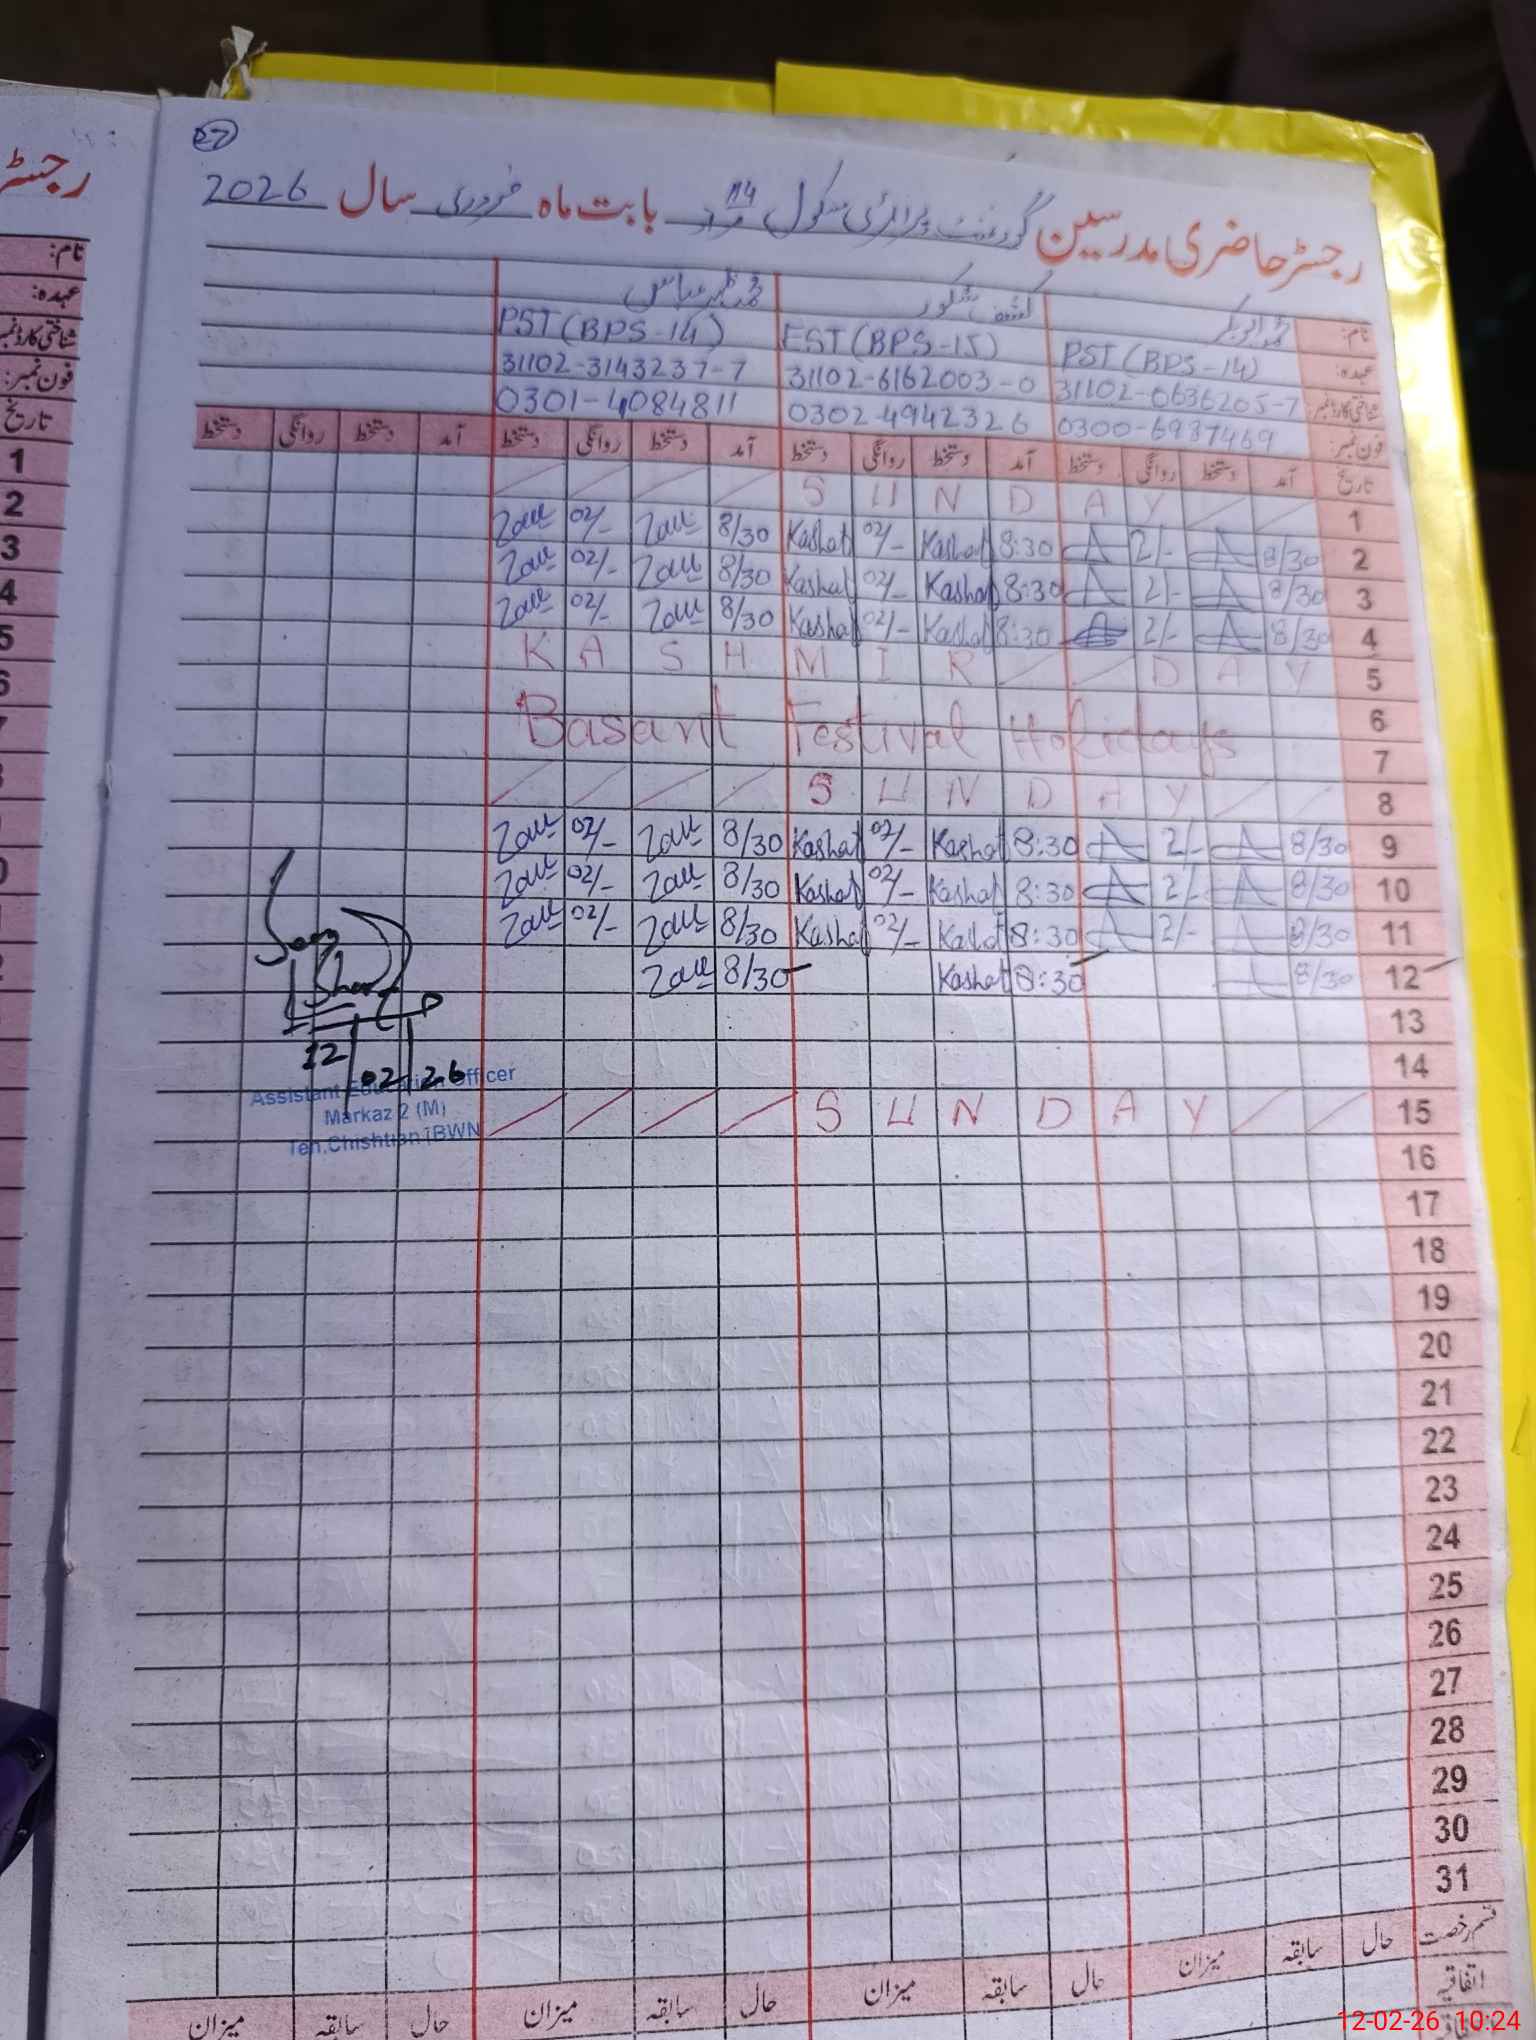 27
رجسٹر حاضری مدرسین گورنمنٹ پرائمری سکول 114 مراد بابت ماہ فروری سال 2026
نام: محمد ابوبکر کاشف شکور محمد ظہیر عباس
عہدہ: PST (BPS-14) EST (BPS-15) PST (BPS-14)
شناختی کارڈ نمبر: 31102-0636205-7 31102-6162003-0 31102-3143237-7
فون نمبر: 0300-6987469 0302-4942326 0301-4084811
تاریخ آمد دستخط روانگی دستخط آمد دستخط روانگی دستخط آمد دستخط روانگی دستخط آمد دستخط روانگی دستخط
1 S U N D A Y
2 8/30 A 2/- A 8:30 Kashaf 02/- Kashaf 8/30 02/-
3 8/30 A 2/- A 8:30 Kashaf 02/- Kashaf 8/30 02/-
4 8/30 A 2/- A 8:30 Kashaf 02/- Kashaf 8/30 02/-
5 K A S H M I R D A Y
6 Basant Festival Holidays
7
8 S U N D A Y
9 8/30 A 2/- A 8:30 Kashaf 02/- Kashaf 8/30 02/-
10 8/30 A 2/- A 8:30 Kashaf 02/- Kashaf 8/30 02/-
11 8/30 A 2/- A 8:30 Kashaf 02/- Kashaf 8/30 02/-
12 8/30 A 8:30 Kashaf 8/30
13
14
15 S U N D A Y
16
17
18
19
20
21
22
23
24
25
26
27
28
29
30
31
12/02/26
Assistant Education Officer
Markaz 2 (M)
Teh. Chishtian BWN
قسم رخصت حال سابقہ میزان حال سابقہ میزان حال سابقہ میزان حال سابقہ میزان
اتفاقیہ
رجسٹر
نام:
عہدہ:
شناختی کارڈ نمبر
فون نمبر:
تاریخ
1
2
3
4
5
6
12-02-26 10:24